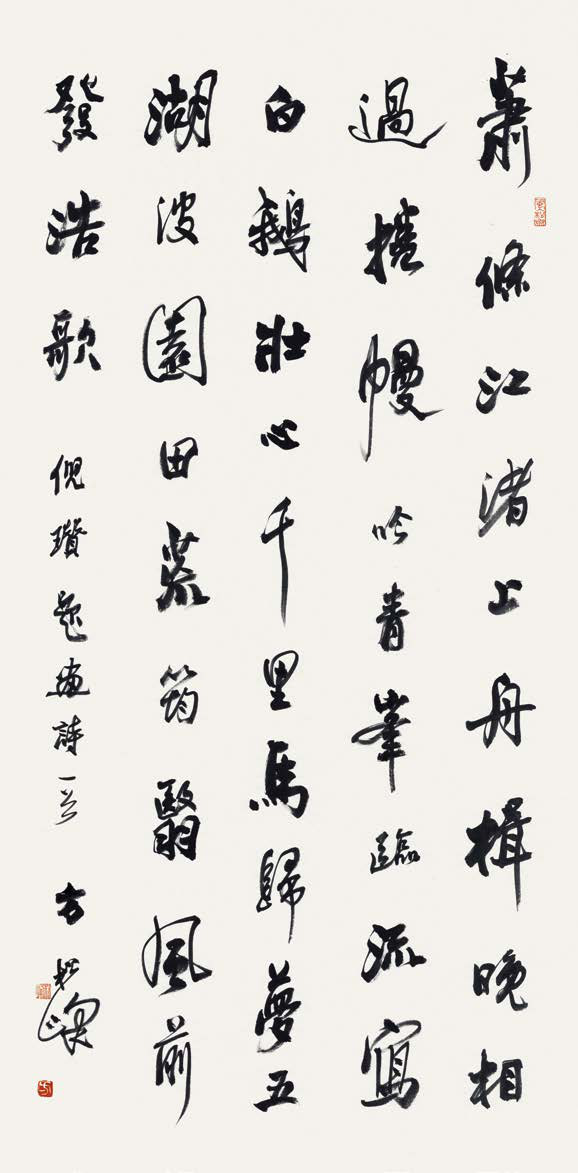 蕭條江渚上舟楫晚相
過捲幔吟青峯臨流寫
白鵝壯心千里馬歸夢五
湖波園田荒筠翳風前
發浩歌
倪瓚題畫詩一首 方